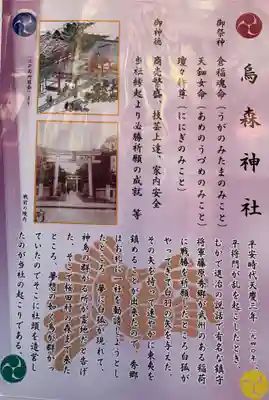 烏森神社
御祭神
倉稲魂命(うがのみたまのみこと)
天鈿女命(あめのうづめのみこと)
瓊々杵尊(ににぎのみこと)
御神徳
商売繁盛、技芸上達、家内安全
当社縁起より必勝祈願の成就 等
平安時代天慶三年(九四〇年)、
平将門が乱を起こしたとき、
むかで退治の説話で有名な鎮守
将軍藤原秀郷が武州のある稲荷
に戦勝を祈願したところ白狐が
やってきて白羽の矢を与えた。
その矢を持って速やかに東夷を
鎮めることが出来たので、秀郷
はお礼に一社を勧請しようとし
たところ、夢に白狐が現れて、
神鳥の群がる所が霊地だと告げ
た。そこで桜田村の森まで来た
ところ、夢想の如く烏が群がっ
ていたのでそこに社頭を造営し
たのが当社の起こりである。
戦前の境内